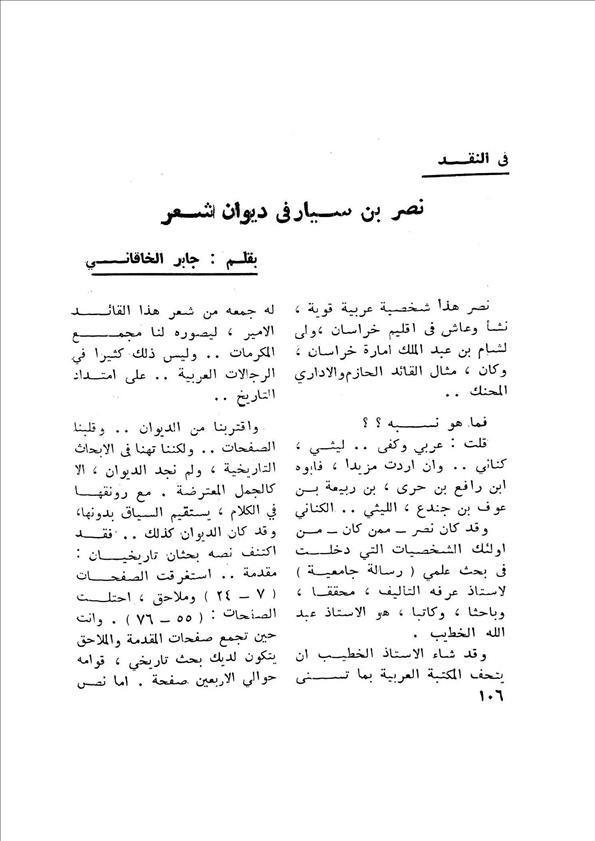 فى النقـــد
نصر بن ســيار فى ديوان اشــعر
بقلــم : جابر الخاقانـــي
نصر هذا شخصية عربية قوية ،
نشأ وعاش فى اقليم خراسان ،ولى
لشام بن عبد الملك امارة خراسان ،
وكان ، مثال القائد الحازم والاداري
المحنك ..
فما هو نســـبه ؟ ؟
قلت : عربي وكفى .. ليثي ،
كناني .. وان اردت مزيدا ، فابوه
ابن رافع بن حرى ، بن ربيعة بــن
عوف بن جندع ، الليثي .. الكناني
وقد كان نصر ــ ممن كان ــ مــن
اولئك الشخصيات التي دخلــت
فى بحث علمي ( رسالة جامعية )
لاستاذ عرفه التاليف ، محققــا ،
وباحثا ، وكاتبا ، هو الاستاذ عبد
الله الخطيب .
وقد شاء الاستاذ الخطيـب ان
يتحف المكتبة العربية بما تســنى
له جمعه من شعر هذا القائــد
الامير ، ليصوره لنا مجمـــع
المكرمات .. وليس ذلك كثيرا في
الرجالات العربية .. على امتــداد
التاريخ ..
واقتربنا من الديوان .. وقلبنا
الصفحات .. ولكننا تهنا فى الابحاث
التاريخية ، ولم نجد الديوان ، الا
كالجمل المعترضة . مع رونقهــا
في الكلام ، يستقيم السياق بدونها،
وقد كان الديوان كذلك .. فقــد
اكتنف نصه بحثان تاريخيــان :
مقدمة .. استغرقت الصفحــات
( ٧ ــ ٢٤ ) وملاحق ، احتلــت
الصفحات : ( ٥٥ ــ ٧٦ ) . وانت
حين تجمع صفحات المقدمة والملاحق
يتكون لديك بحث تاريخي ، قوامه
حوالي الاربعين صفحة . اما نص
١٠٦